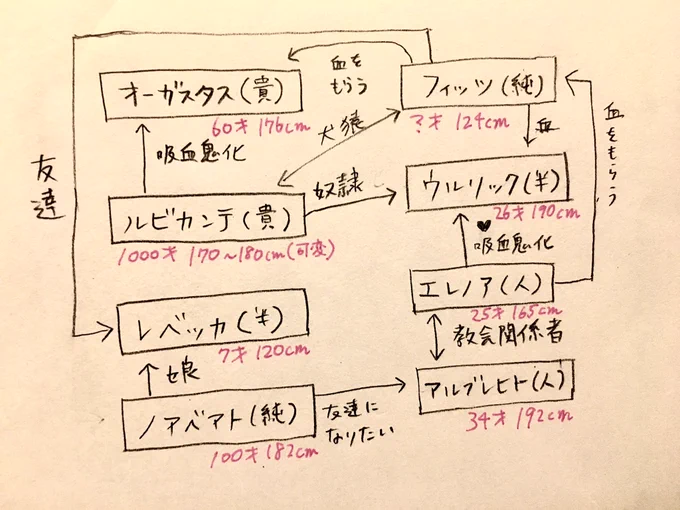 血を
もらう
オーガスタス(貴)
60才 176cm
フィッツ(純)
?才 124cm
犬猿
血
血をもらう
吸血鬼化
友達
奴隷
ウルリック(半)
26才 190cm
ルビカンテ(貴)
1000才 170~180cm(可変)
吸血鬼化
エレノア(人)
25才 165cm
レベッカ(半)
7才 120cm
教会関係者
娘
アルブレヒト(人)
34才 192cm
ノアベアト(純)
100才 182cm
友達に
なりたい